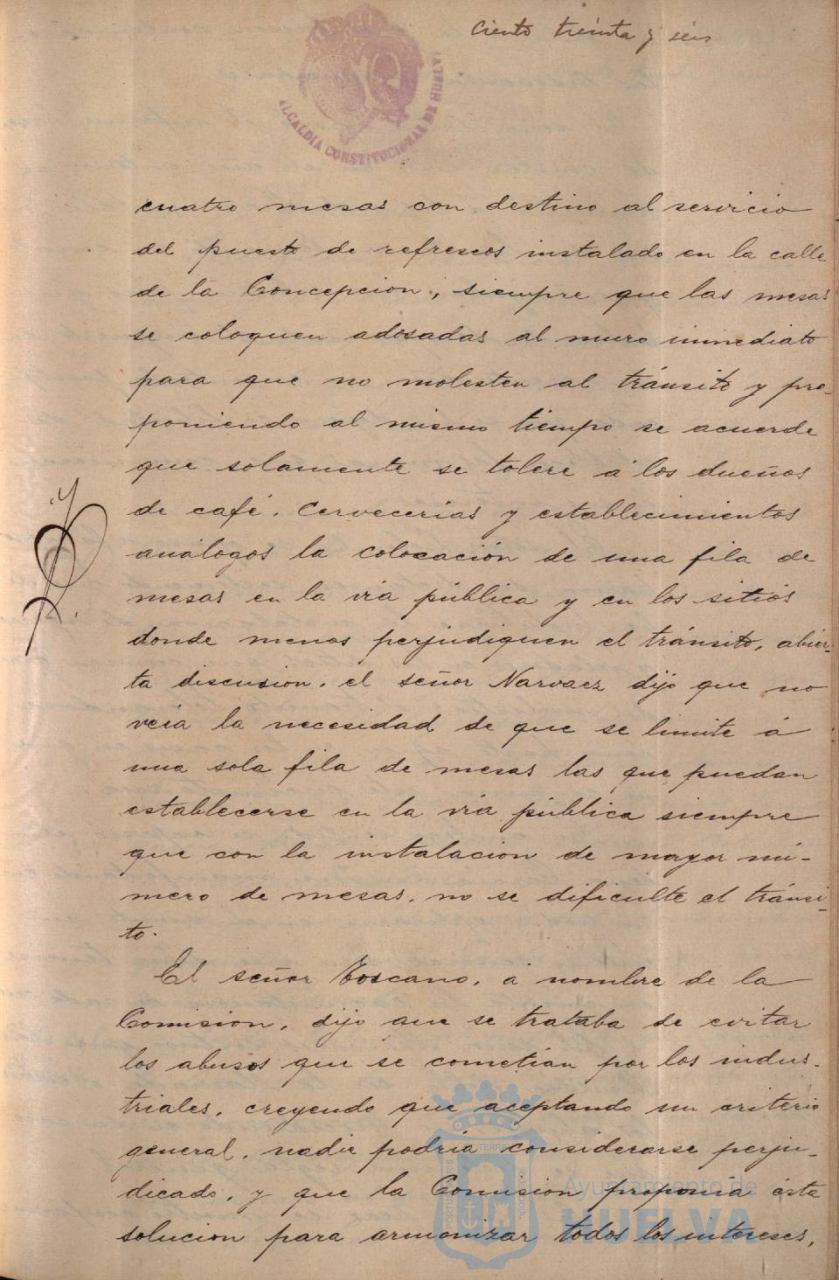 Ciento treinta y seis
ALCALDIA CONSTITUCIONAL DE HUELVA
cuatro mesas con destino al servicio
del puesto de refrescos instalado en la calle
de la Concepcion, siempre que las mesas
se coloquen adosadas al muro inmediato
para que no molesten al tránsito y pro-
poniendo al mismo tiempo se acuerde
que solamente se tolere á los dueños
de café, cervecerias y establecimientos
análogos la colocación de una fila de
mesas en la via pública y en los sitios
donde menos perjudiquen el tránsito, abier-
ta discusion, el señor Narvaez dijo que no
veia la necesidad de que se limite á
una sola fila de mesas las que puedan
establecerse en la via pública siempre
que con la instalacion de mayor nú-
mero de mesas, no se dificulte el tránsi-
to.
El señor Toscano, á nombre de la
Comision, dijo que se trataba de evitar
los abusos que se cometian por los indus-
triales, creyendo que aceptando un criterio
general, nadie podria considerarse perju-
dicado, y que la Comision proponia ésta
solucion para armonizar todos los intereses,
Ayuntamiento de
HUELVA